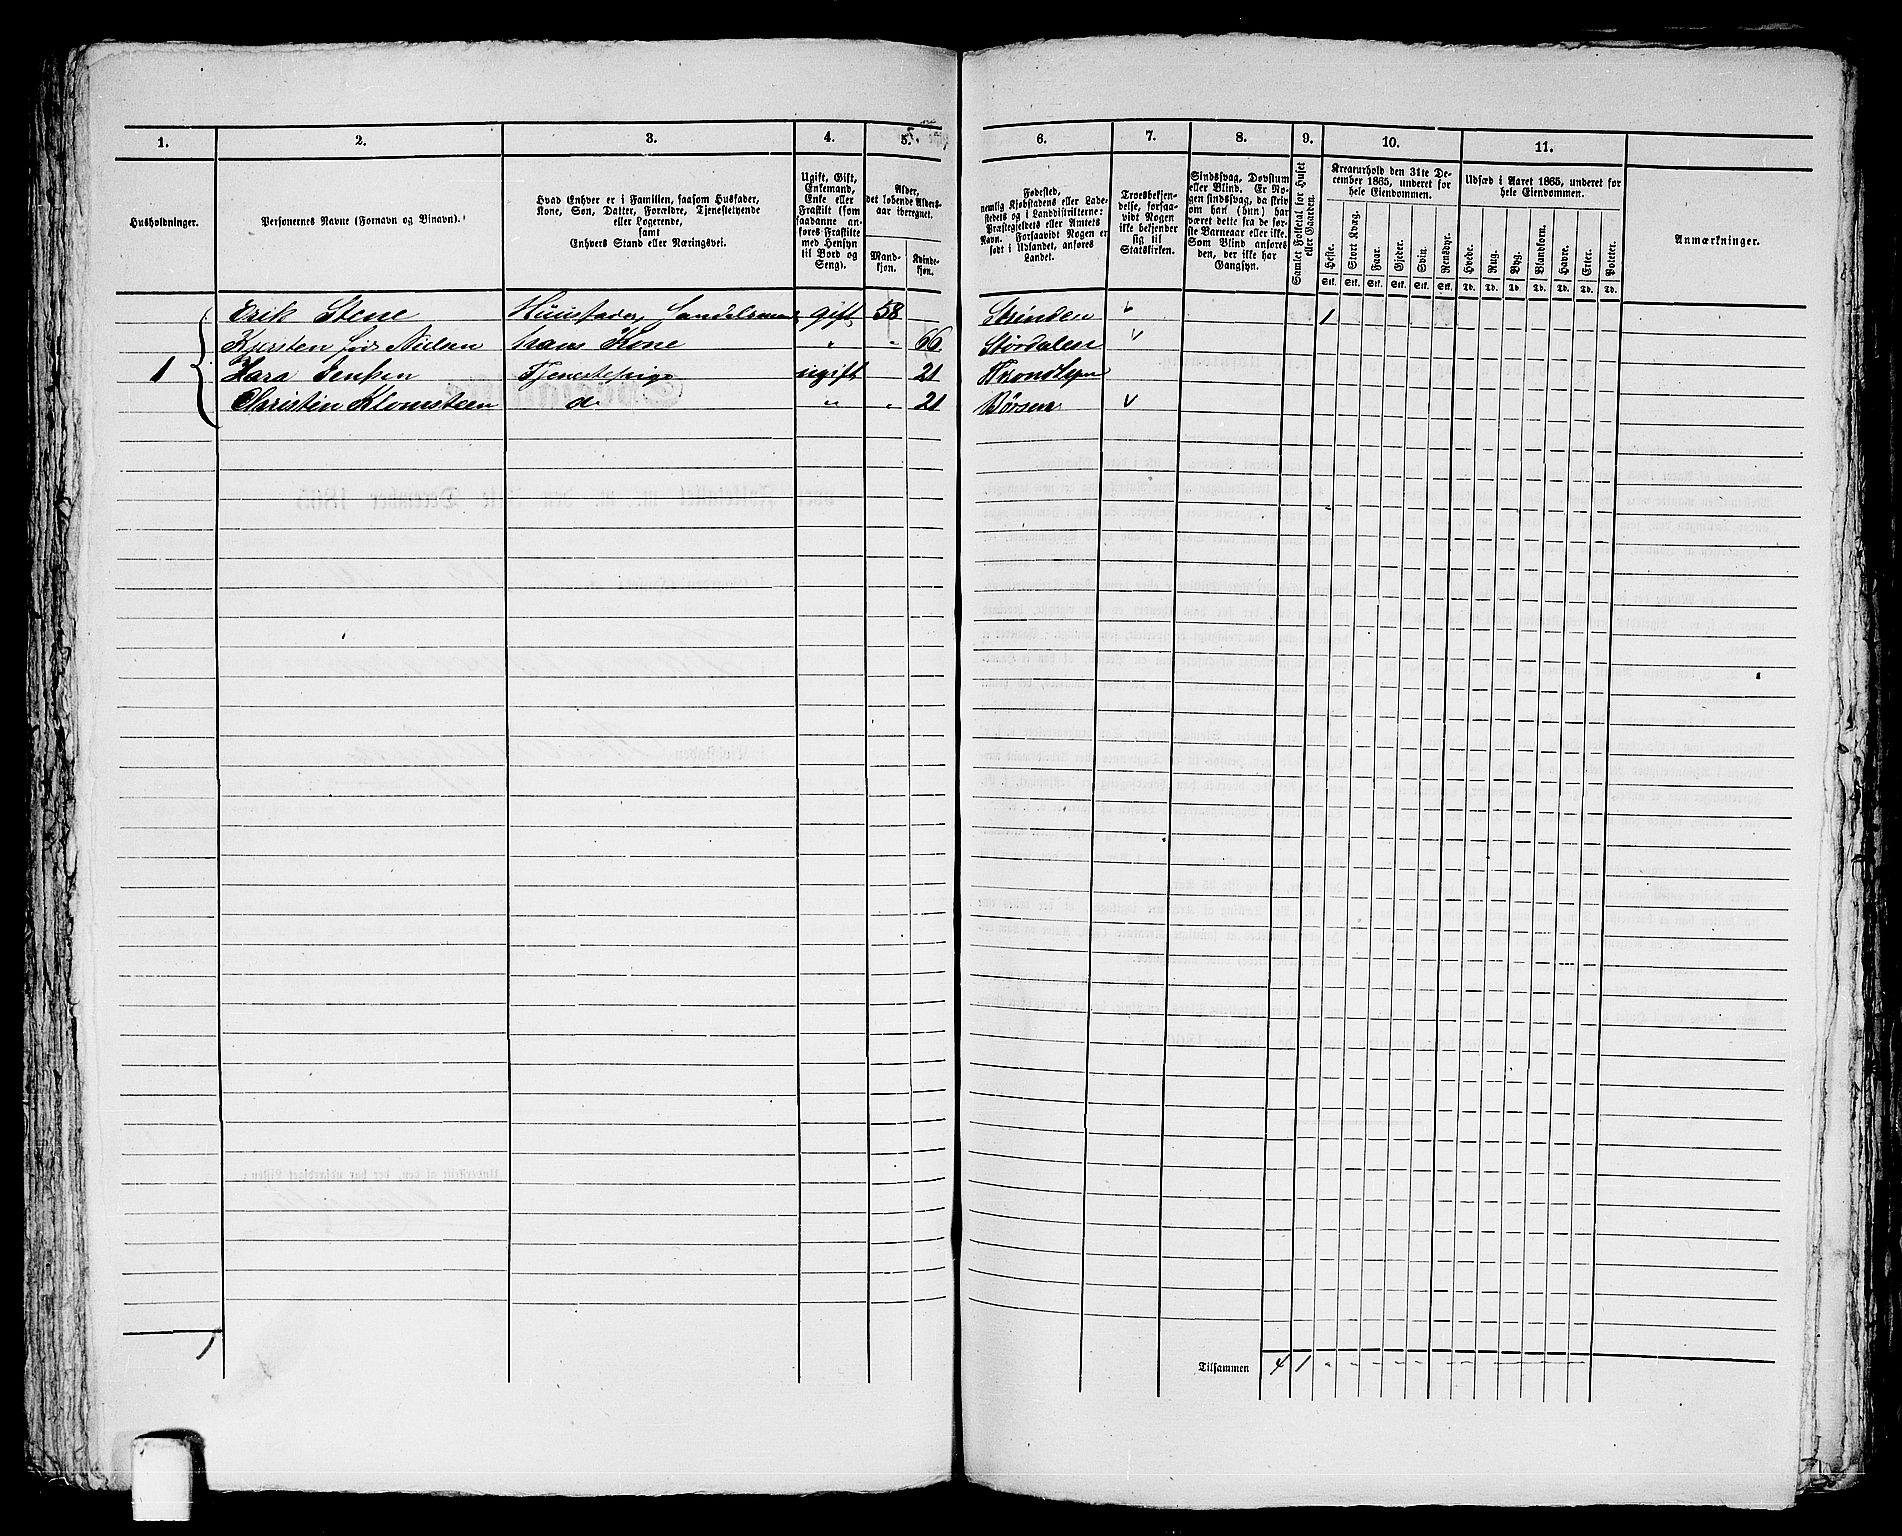 1. 2. 3. 4. 5. 6. 7. 8. 9. 10. 11.
Husholdninger.
Personernes Navne (Fornavn og Binavn).
Hvad Enhver er i Familien, saasom Husfader,
Kone, Søn, Datter, Forældre, Tjenestetyende
eller Logerende,
samt
Enhvers Stand eller Næringsvei.
Ugift, Gift,
Enkemand,
Enke eller
Frastilt (som
saadanne an-
føres Frastilte
med Hensyn
til Bord og
Seng).
Alder,
det løbende Alders-
aar iberegnet.
Mand-
kjøn.
Kvinde-
kjøn.
Fødested,
nemlig Kjøbstadens eller Lade-
stedets og i Landdistrikterne:
Præstegjeldets eller Amtets
Navn. Forsaavidt Nogen er
født i Udlandet, anføres
Landet.
Troesbekjen-
delse, forsaa-
vidt Nogen
ikke bekjender
sig til
Statskirken.
Sindssvag, Døvstum
eller Blind. Er No-
gen sindssvag, da skriv
om han (hun) har
været dette fra de før-
ste Barneaar eller ikke.
Som Blind anføres
den, der ikke har
Gangsyn.
Samlet Folketal for Huset
eller Gaarden.
Kreaturhold den 31te De-
cember 1865, underet for
hele Eiendommen.
Heste. Stort Kvæg. Faar. Gjeder. Svin. Rensdyr.
Stk. Stk. Stk. Stk. Stk. Stk.
Udsæd i Aaret 1865, underet for
hele Eiendommen.
Hvede. Rug. Byg. Blandkorn. Havre. Erter. Poteter.
Td. Td. Td. Td. Td. Td. Td.
Anmærkninger.
Erik Stene Huusfader, Handelsmand gift 58 Strinden 1
Kjersten født Nielsen hans Kone " 66 Størdalen
1 Jensen Tjenestepige ugift 21 Trondhjem
Christin Klomsteen do " 21 Børsen
1
Tilsammen 4 1